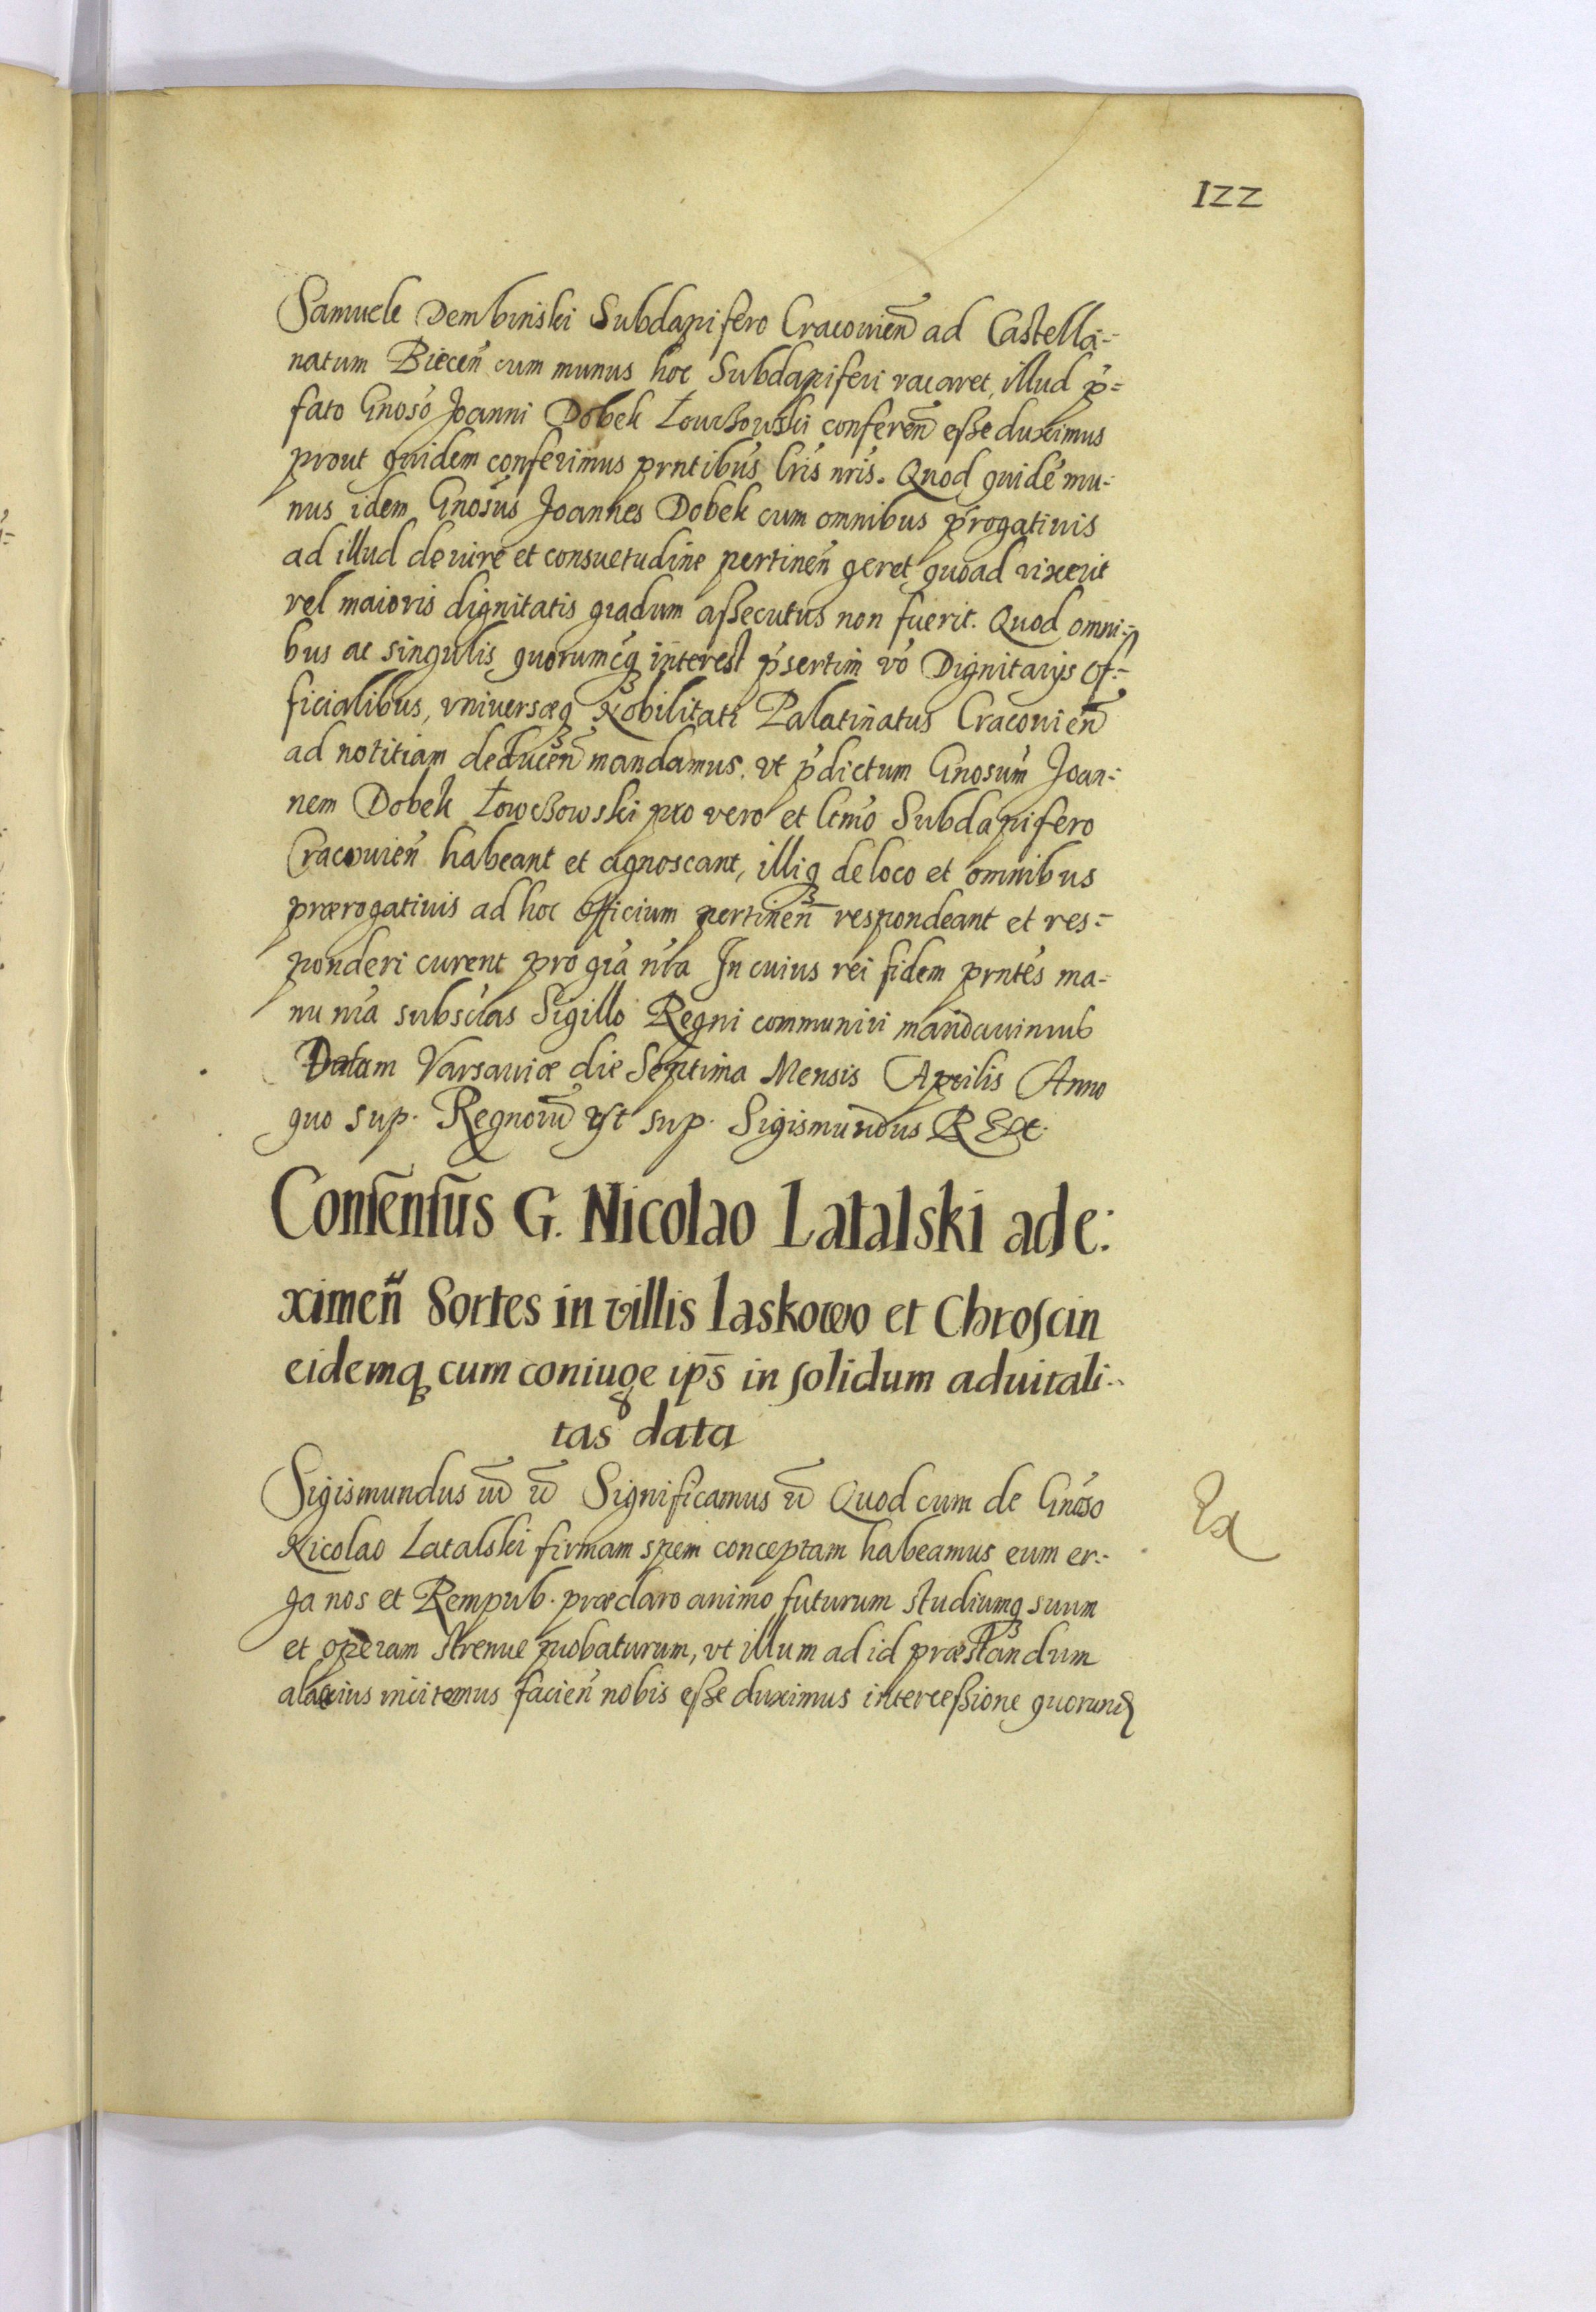 122
Samuele Dembinski Subdapifero Cracovieñ ad Castella-
natum Biecen̄ cum munus hoc Subdapiferi vacaret, illud p̄-
fato Gnoso Joanni Dobek Łowczowski conferen̄ eße duximus
prout quidem conferimus prntibus lris nris. Quod quidē mu-
nus idem Gnosus Joannes Dobek cum omnibus prrogativis
ad illud de iure et consuetudine pertinen̄ geret quoad vixerit
vel maioris dignitatis gradum aßecutus non fuerit. Quod omni-
bus ac singulis quorumcq interest p̄sertim vo Dignitarijs of-
ficialibus, vniversæq Nobilitati Palatinatus Cracovien̄
ad notitiam deducen̄ mandamus. vt p̄dictum Gnosum Joan-
nem Dobek Łowczowski pro vero et ltmo Subdapifero
Cracovien̄ habeant et agnoscant, illiq de loco et omnibus
prærogativis ad hoc officium pertinen̄ respondeant et res-
ponderi curent pro gra nra In cuius rei fidem prntes ma-
nu nra subscras Sigillo Regni communiri mandavimus
Datum Varsaviæ die Septima Mensis Aprilis Anno
quo sup. Regnorū vt sup. Sigismundus REX.
Consensus G. Nicolao Latalski ad e:
ximen̄ Sortes in villis Laskowo et Chroscin
eidemq cum coniuge ips̄ in solidum advitali-
tas data
Sigismundus Significamus Quod cum de Gnoso
Nicolao Latalski firmam spem conceptam habeamus eum er-
ga nos et Rempub. præclaro animo futurum studiumq suum
et operam strenue probaturum, vt illum ad id præstandum
alacrius incitemus facien̄ nobis eße duximus interceßione quorund